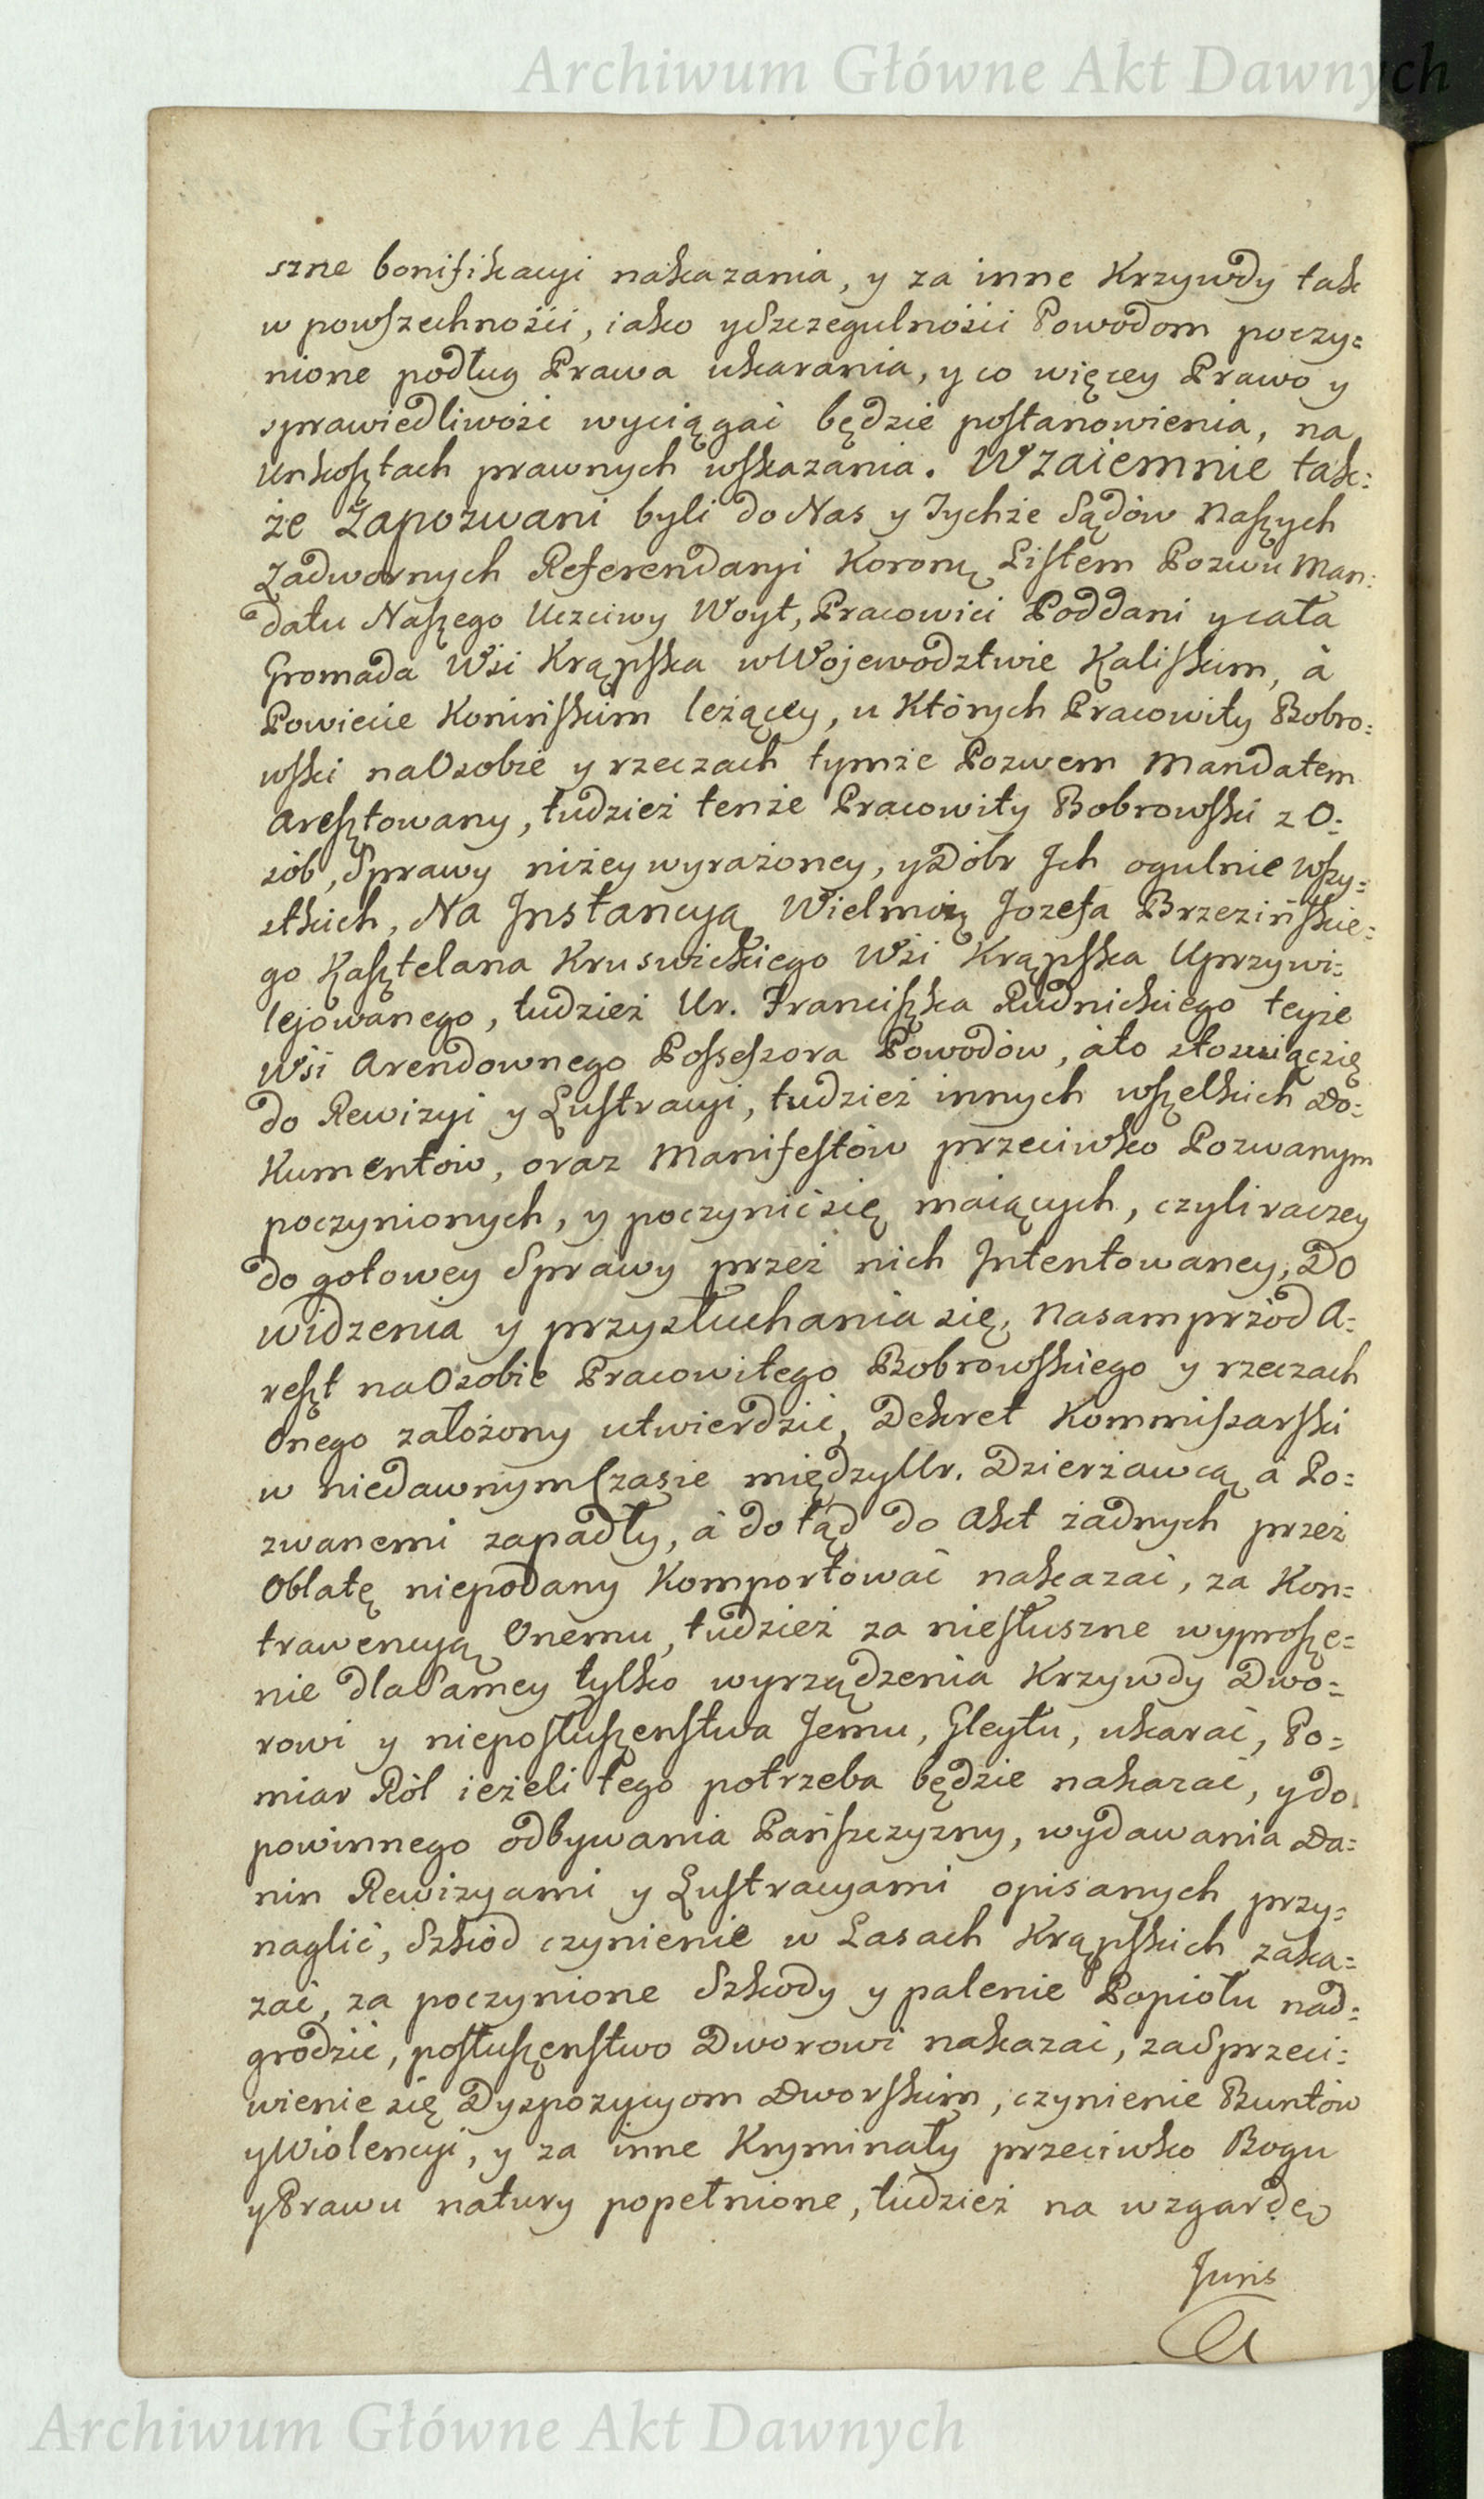 Archiwum Główne Akt Dawnych
szne bonifikacyi nakazania, y za inne Krzywdy tak
w powszechności, iako y Szczegulności Powodom poczy=
nione podług Prawa ukarania, y co więcey Prawo y
sprawiedliwość wyciągać będzie postanowienia, na
Unkosztach prawnych wskazania. Wzaiemnie tak=
że Zapozwani byli do Nas y Tychże Sądów Naszych
Zadwornych Referendaryi Koronn. Listem Pozwu Man=
datu Naszego Uczciwy Woyt, Pracowici Poddani y cała
Gromada Wsi Krąpska w Wojewodztwie Kaliskim, a
Powiecie Konińskim leżącey, u Których Pracowity Bobro=
wski na Osobie y rzeczach tymże Pozwem Mandatem
Aresztowany, tudzież tenże Pracowity Bobrowski z O=
sób, Sprawy niżey wyrażoney, y Dóbr Ich ogulnie wszy=
stkich, Na Instancyą Wielmoż. Jozefa Brzezińskie=
go Kasztelana Kruswickiego Wsi Krąpska Uprzywi=
lejowanego, tudzież Ur. Franciszka Rudnickiego teyże
Wsi Arendownego Possessora Powodów, á to stosuiąc się
do Rewizyi y Lustracyi, tudzież innych wszelkich Do=
kumentów, oraz Manifestów przeciwko Pozwanym
poczynionych, y poczynić się maiących, czyli raczey
do gotowey Sprawy przez nich Intentowaney, Do
widzenia y przysłuchania się, Nasamprzód A=
reszt na Osobie Pracowitego Bobrowskiego y rzeczach
Onego założony utwierdzić, Dekret Kommissarski
w niedawnym Czasie między Ur. Dzierżawcą a Po=
zwanemi zapadły, a dotąd do Akt żadnych przez
Oblatę niepodany Komportować nakazać, za Kon=
trawencyą Onemu, tudzież za niesłuszne wyprosze=
nie dla Samey tylko wyrządzenia Krzywdy Dwo=
rowi y nieposłuszenstwa Jemu, Gleytu, ukarać, Po=
miar Ról ieżeli tego potrzeba będzie nakazać, y do
powinnego odbywania Pańszczyzny, wydawania Da=
nin Rewizyami y Lustracyami opisanych przy=
naglić, Szkód czynienie w Lasach Krąpskich zaka=
zać, za poczynione Szkody y palenie Popiołu nad=
grodzić, posłuszenstwo Dworowi nakazać, za Sprzeci=
wienie się Dyspozycyom Dworskim, czynienie Buntów
y Wiolencyi, y za inne Kryminały przeciwko Bogu
y Prawu natury popełnione, tudzież na wzgardę
Juris
Archiwum Główne Akt Dawnych